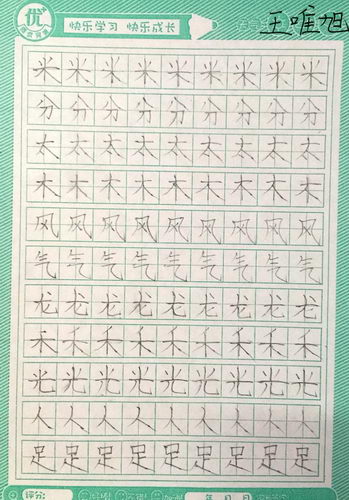 优
快乐学习 快乐成长
王唯旭
米米米米米米米米米
分分分分分分分分分
太太太太太太太太太
木木木木木木木木木
风风风风风风风风风
气气气气气气气气气
龙龙龙龙龙龙龙龙龙
禾禾禾禾禾禾禾禾禾
光光光光光光光光光
人人人人人人人木木
足足足足足足足足足
评分:
年 月 日